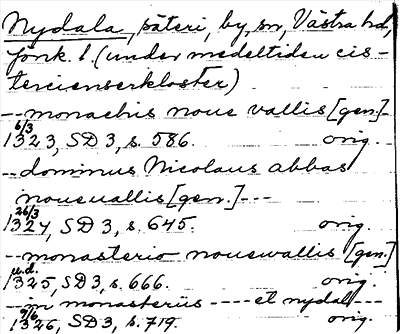 Nydala, säteri, by, sn, Västra hd,
Jönk. l. (under medeltiden cis-
tercienserkloster)
--monachis noue vallis [gen]-
6/3
1323, SD 3, s. 586. orig.
--dominus Nicolaus abbas
noueuallis [gen.]---
26/3
1324, SD 3, s. 645. orig.
--monasterio nouevallis [gen]
u.d.
1325, SD 3, s. 666. orig.
--in monasteriis ---- et nydal---
9/6
1326, SD 3, s. 719. orig.